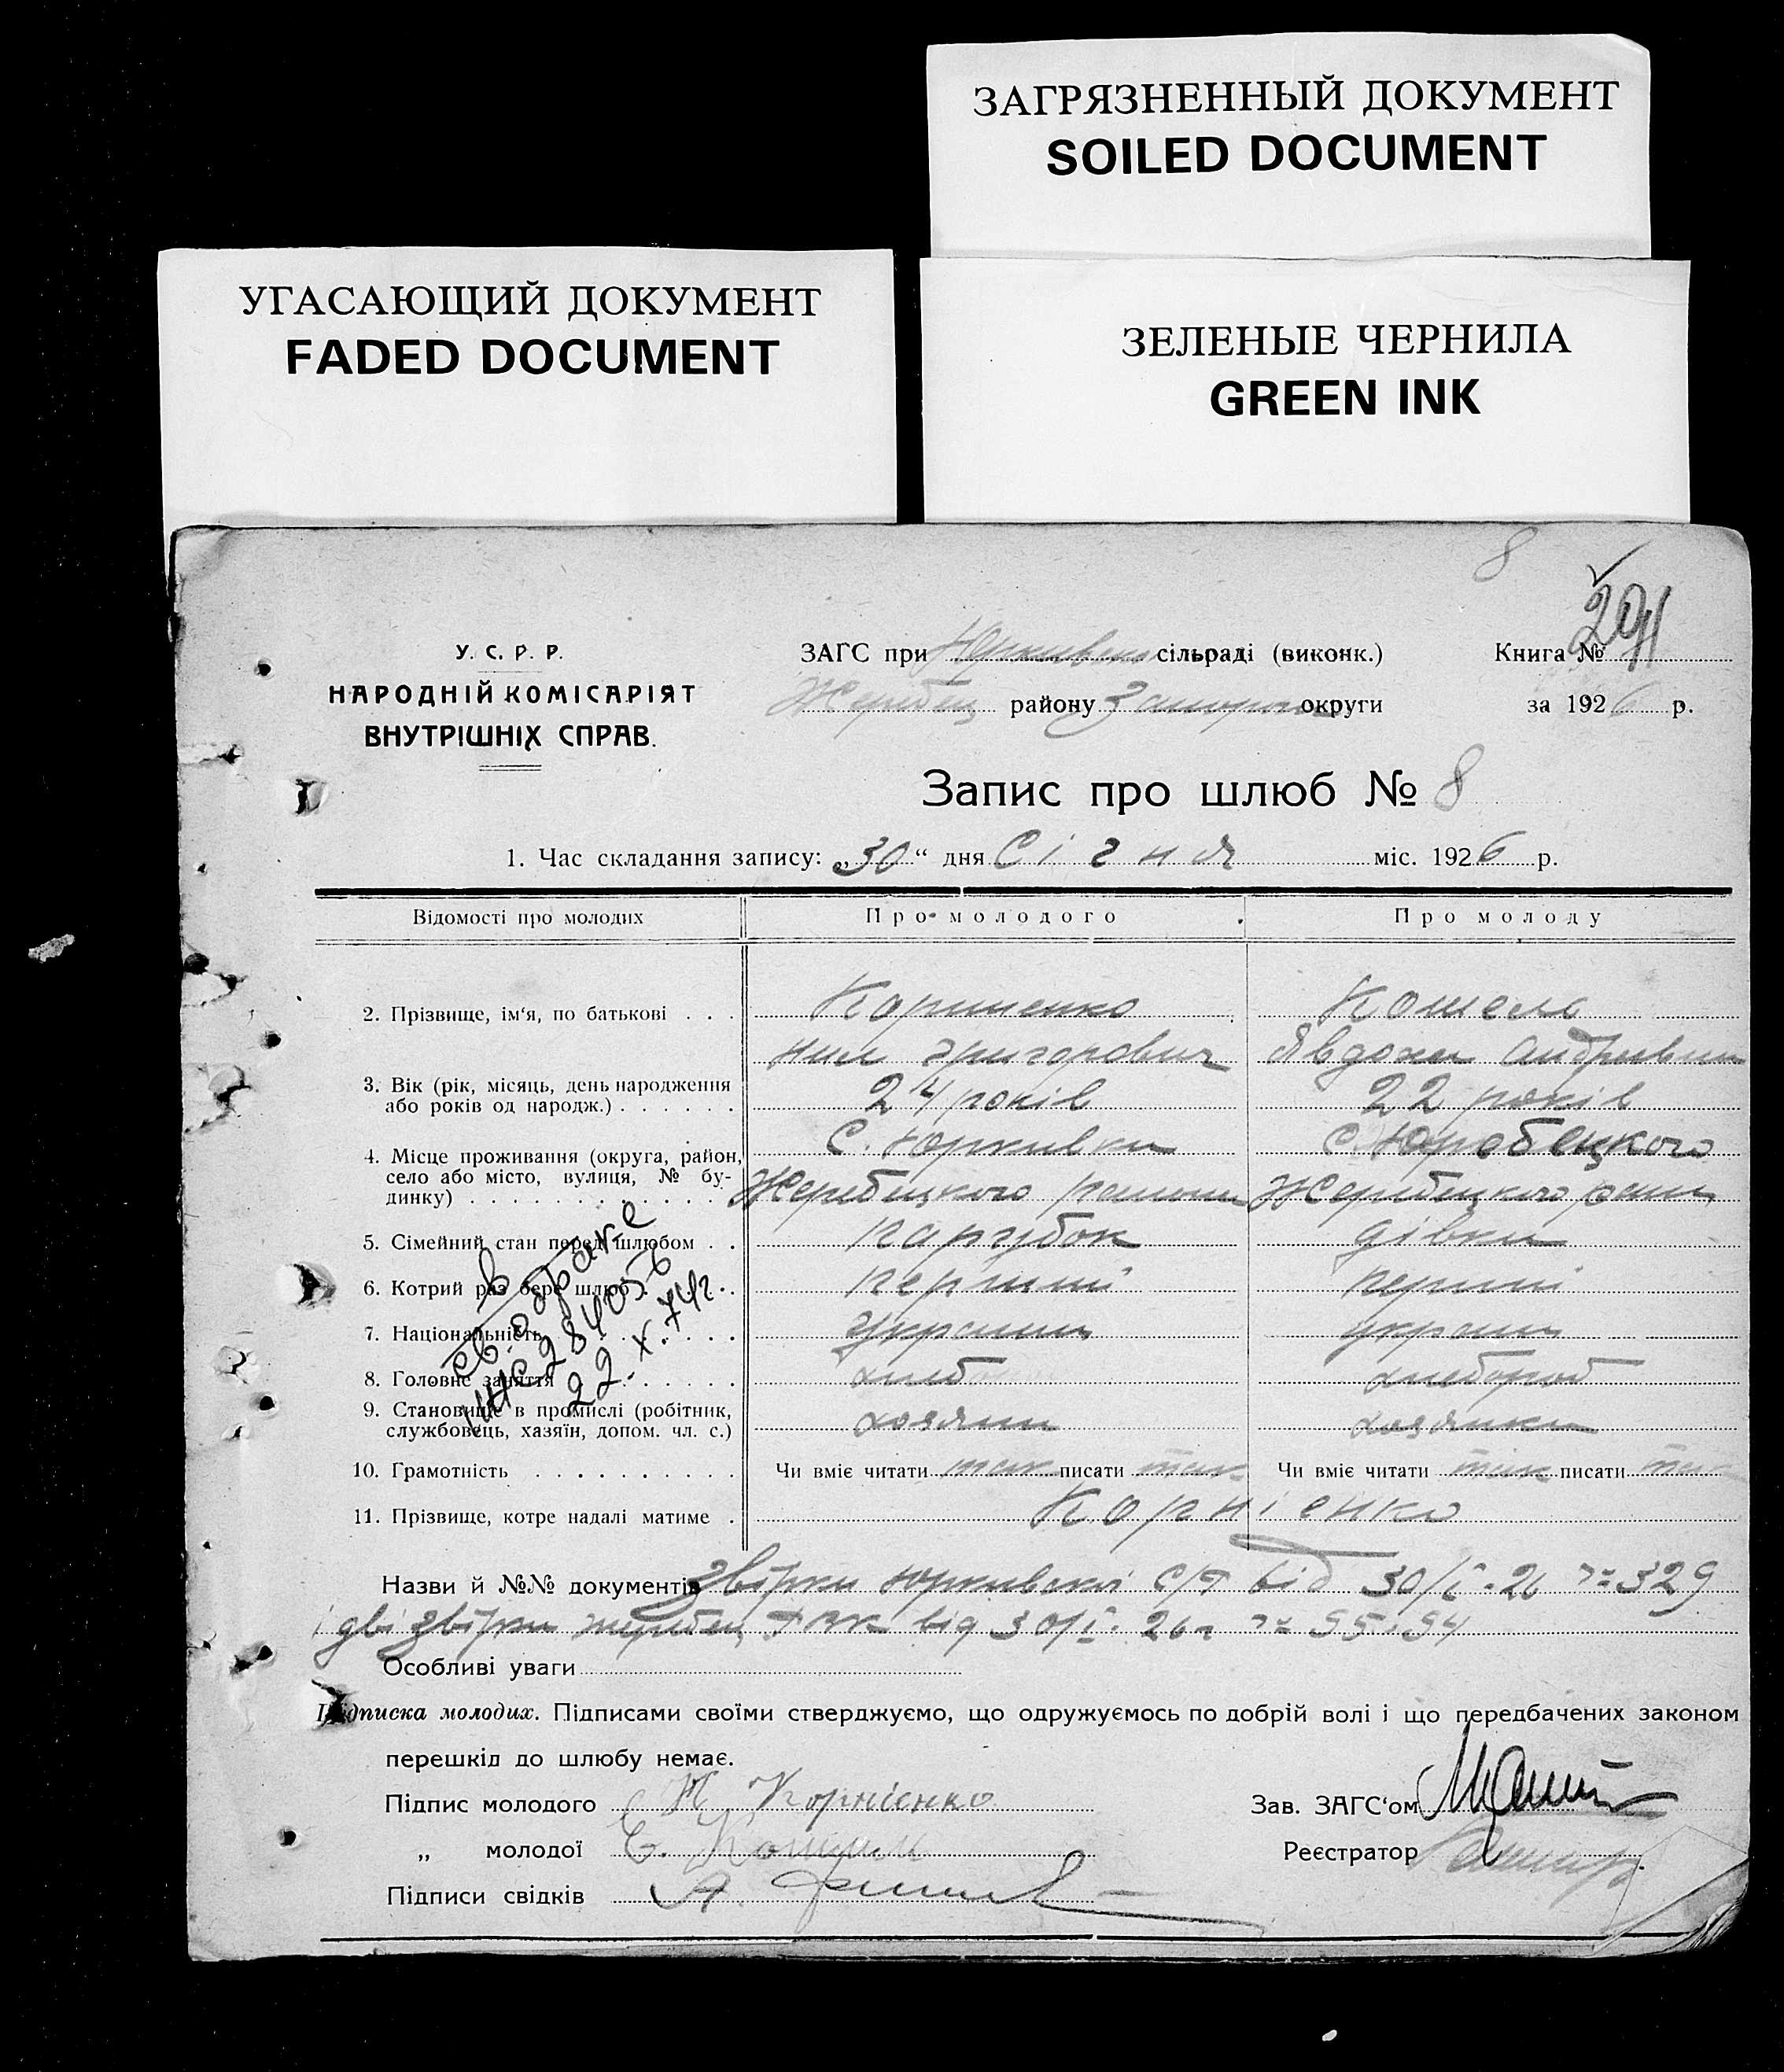 ЗАГРЯЗНЕННЫЙ ДОКУМЕНТ
SOILED DOCUMENT
УГАСАЮЩИЙ ДОКУМЕНТ
FADED DOCUMENT
ЗЕЛЕНЫЕ ЧЕРНИЛА
GREEN INK
8
У. С. Р. Р.
НАРОДНІЙ КОМІСАРІЯТ
ВНУТРІШНІХ СПРАВ.
ЗАГС при сільраді (виконк.)
Жеребец району Запорож округи
Книга № 291
за 1926 р.
Запис про шлюб № 8
1. Час складання запису: „30“ дня Січня міс. 1926 р.
Відомості про молодих Про молодого Про молоду
2. Прізвище, ім'я, по батькові . . . Корниенко Кошель
Нил Григорович Явдоха
3. Вік (рік, місяць, день народження
або років од народж.) . . . . . . 24 років 22 років
4. Місце проживання (округа, район, село або місто, вулиця, № будинку) . . . С. Юркивки С.
Жеребецкого района Жеребецкого
5. Сімейний стан перед шлюбом . . парубок дівка
6. Котрий раз бере шлюб . . . перший перший
7. Національність . . . украин украин
8. Головне заняття . . . хлеб хлебороб
9. Становище в промислі (робітник,
службовець, хазяїн, допом. чл. с.) хозяин хозяика
10. Грамотність . . . Чи вміє читати так писати так Чи вміє читати так писати так
11. Прізвище, котре надалі матиме . Корнієнко
св. о браке
284056
22.X.74г.
Назви й №№ документів звірки Юркивскої С/Р від 30/I-26 № 329
і дві звірки жеребец РВК від 30/I. 26 г № 55
Особливі уваги
Підписка молодих. Підписами своїми стверджуємо, що одружуємось по добрій волі і що передбачених законом
перешкід до шлюбу немає.
Підпис молодого Н. Корнієнко Зав. ЗАГС'ом
„ молодої Е. Реєстратор
Підписи свідків А.